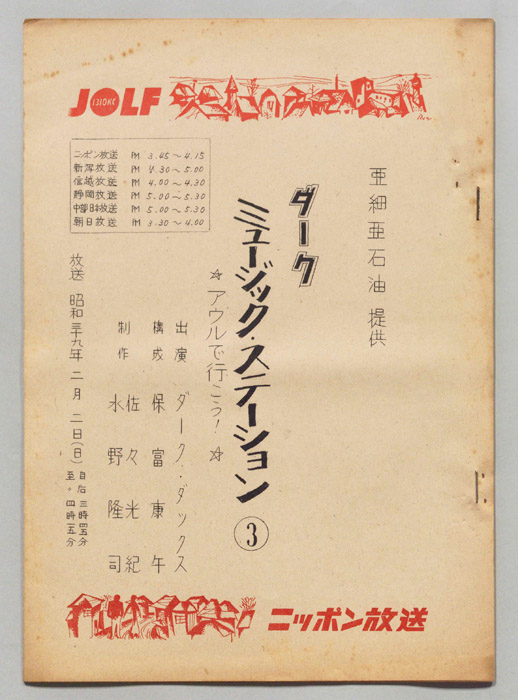 JOLF
1310KC
亜細亜石油 提供
ダーク
ミュージック・ステーション ③
☆ アウルで行こう! ☆
出演 ダーク・ダックス
構成 保富康午
制作 佐々光紀
水野隆司
放送 昭和三十九年 二月 二日(日) 自后 三時四五分
至〃 四時一五分
ニッポン放送 PM 3.45〜4.15
新潟放送 PM 4.30〜5.00
信越放送 PM 4.00〜4.30
静岡放送 PM 5.00〜5.30
中部日本放送 PM 5.00〜5.30
朝日放送 PM 3.30〜4.00
ニッポン放送